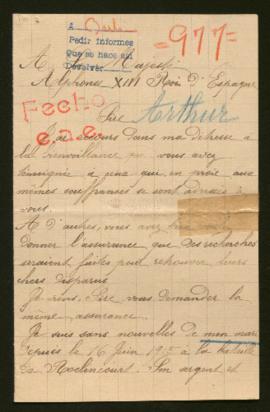 A Berlin
Pedir informes
Que se hace asi
Devolver
-977=
A Sa Majesté
Alphonse XIII Roi d'Espagne
Fecho
c.a.e.
Arthur
Sire
J'ai recours dans ma détresse à
la bienveillance que vous avez
témoignée à ceux qui, en proie aux
mêmes souffrances se sont adressés à
vous.
A d'autres, vous avez bien
donner l'assurance que des recherches
seraient faites pour retrouver leurs
chers disparus
Je viens, Sire, vous demander la
même assurance.
Je suis sans nouvelles de mon mari
depuis le 16 Juin 1915 à la bataille
de Roclincourt. Son argent et